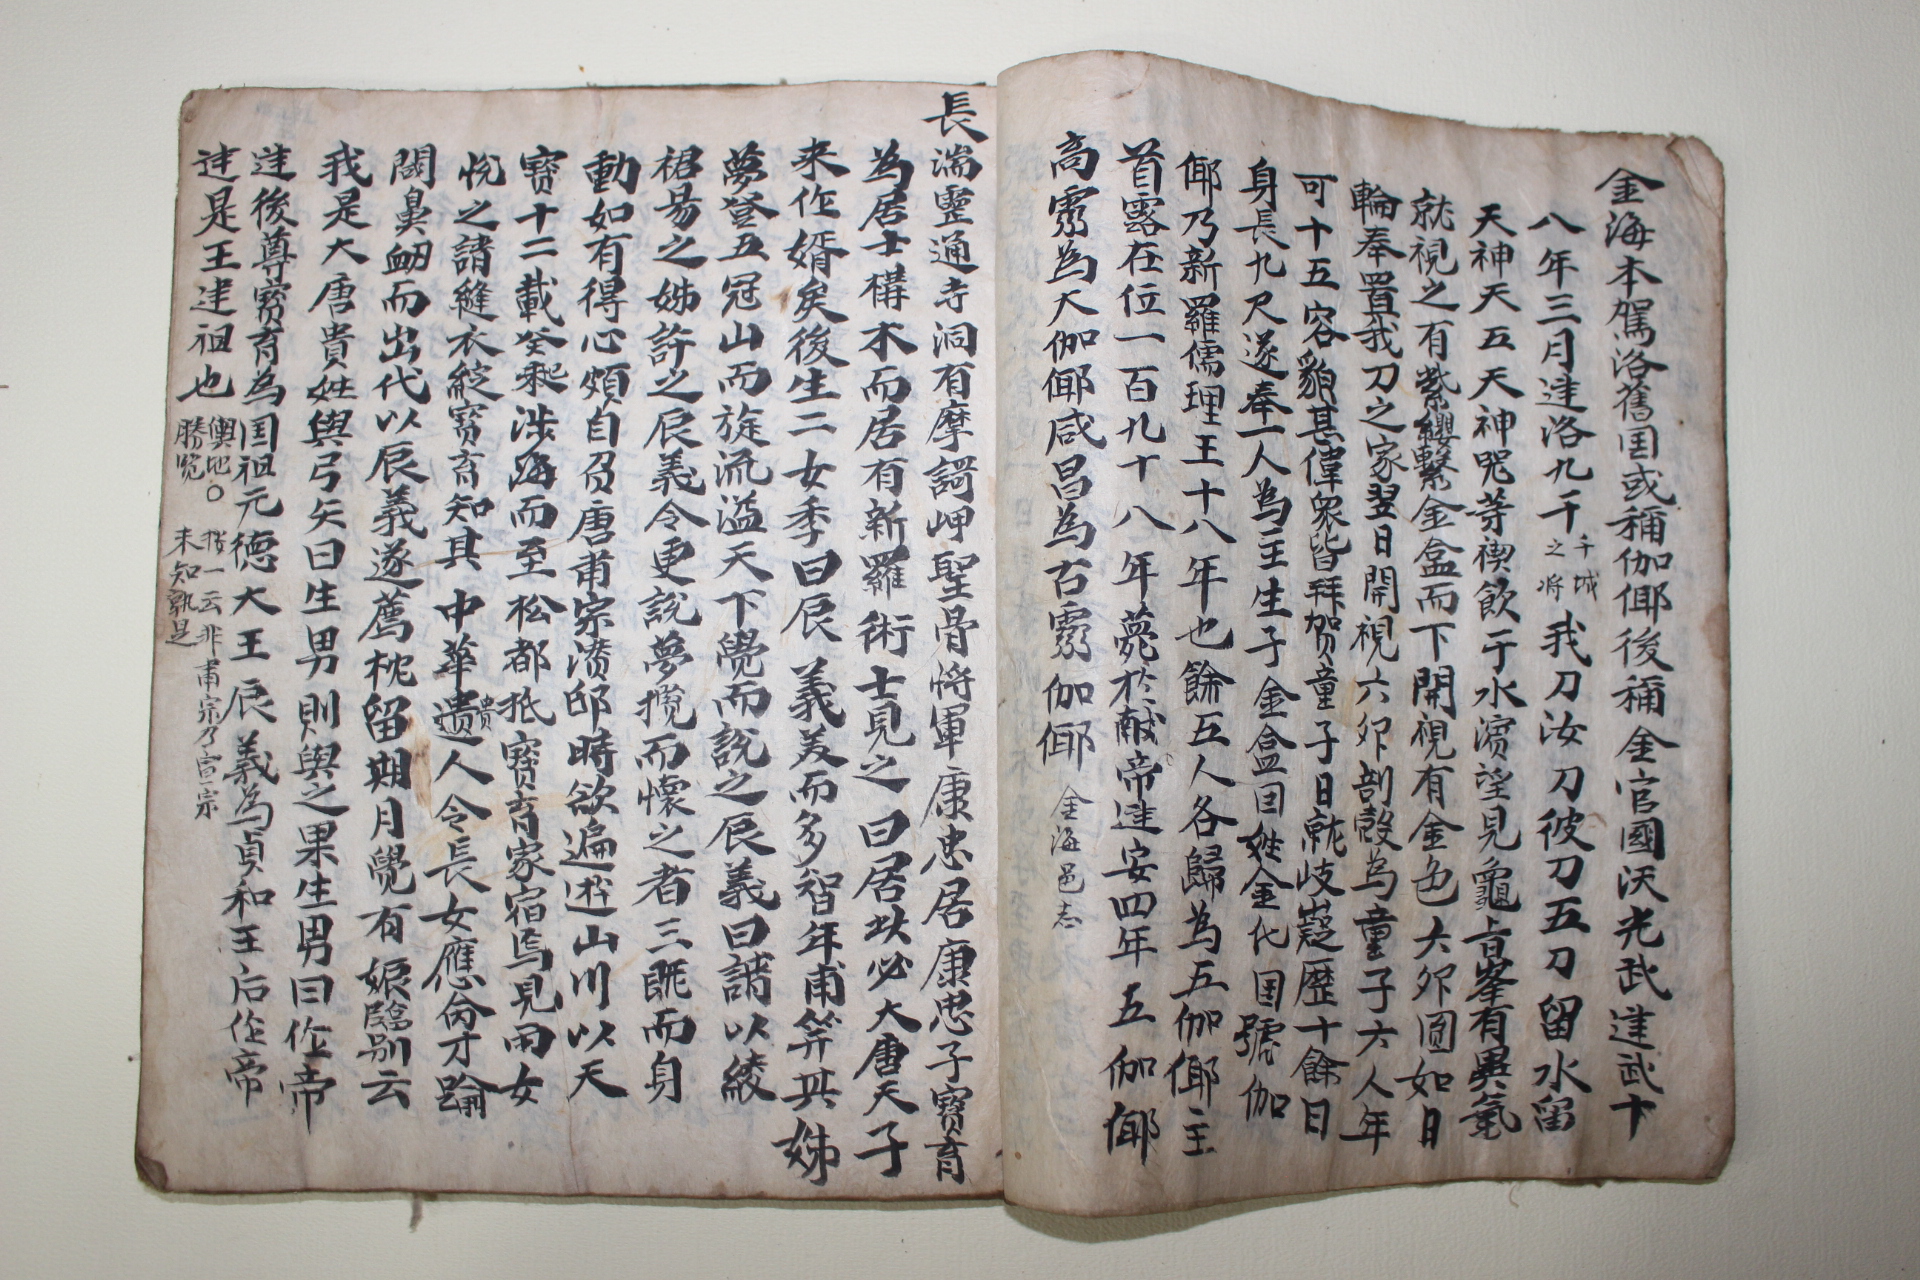 金海本駕洛舊国或稱伽倻後稱金官國漢光武建武十
八年三月達洛九干千城之将我刀汝刀彼刀五刀留水留
天神天五天神咒等禊飲于水濱望見龜旨峯有異氣
就視之有紫纓繫金盒而下開視有金色六卵圓如日
輪奉置我刀之家翌日開視六卵剖殼為童子六人年
可十五容貌甚偉衆皆拜贺童子日就岐嶷歷十餘日
身長九尺遂奉一人為主生子金盒因姓金化国號伽
倻乃新羅儒理王十八年也餘五人各歸為五伽倻主
首露在位一百九十八年薨於献帝建安四年五伽倻
高霊為大伽倻咸昌為古霊伽倻 金海邑志
長湍靈通寺洞有摩訶岬聖骨將軍康忠居康忠子寶育
為居士構木而居有新羅術士見之曰居此必大唐天子
来作婿矣後生二女季曰辰義美而多智年甫笄其姊
夢登五冠山而旋流溢天下覺而說之辰義曰請以綾
裙易之姊許之辰義令更說夢攬而懷之者三既而身
動如有得心頗自召唐肅宗潜邸時欲遍遊山川以天
寶十二載癸巳涉海而至松都抵寶育家宿焉見两女
悅之請縫衣綻寶育知其中華貴人令長女應命才踰
閾鼻衂而出代以辰義遂薦枕留期月覺有娠臨别云
我是大唐貴姓與弓矢曰生男則與之果生男曰作帝
建後尊寶育為国祖元德大王辰義為貞和王后作帝
建是王建祖也 輿地勝覽○按一云非肅宗乃宣宗未知孰是